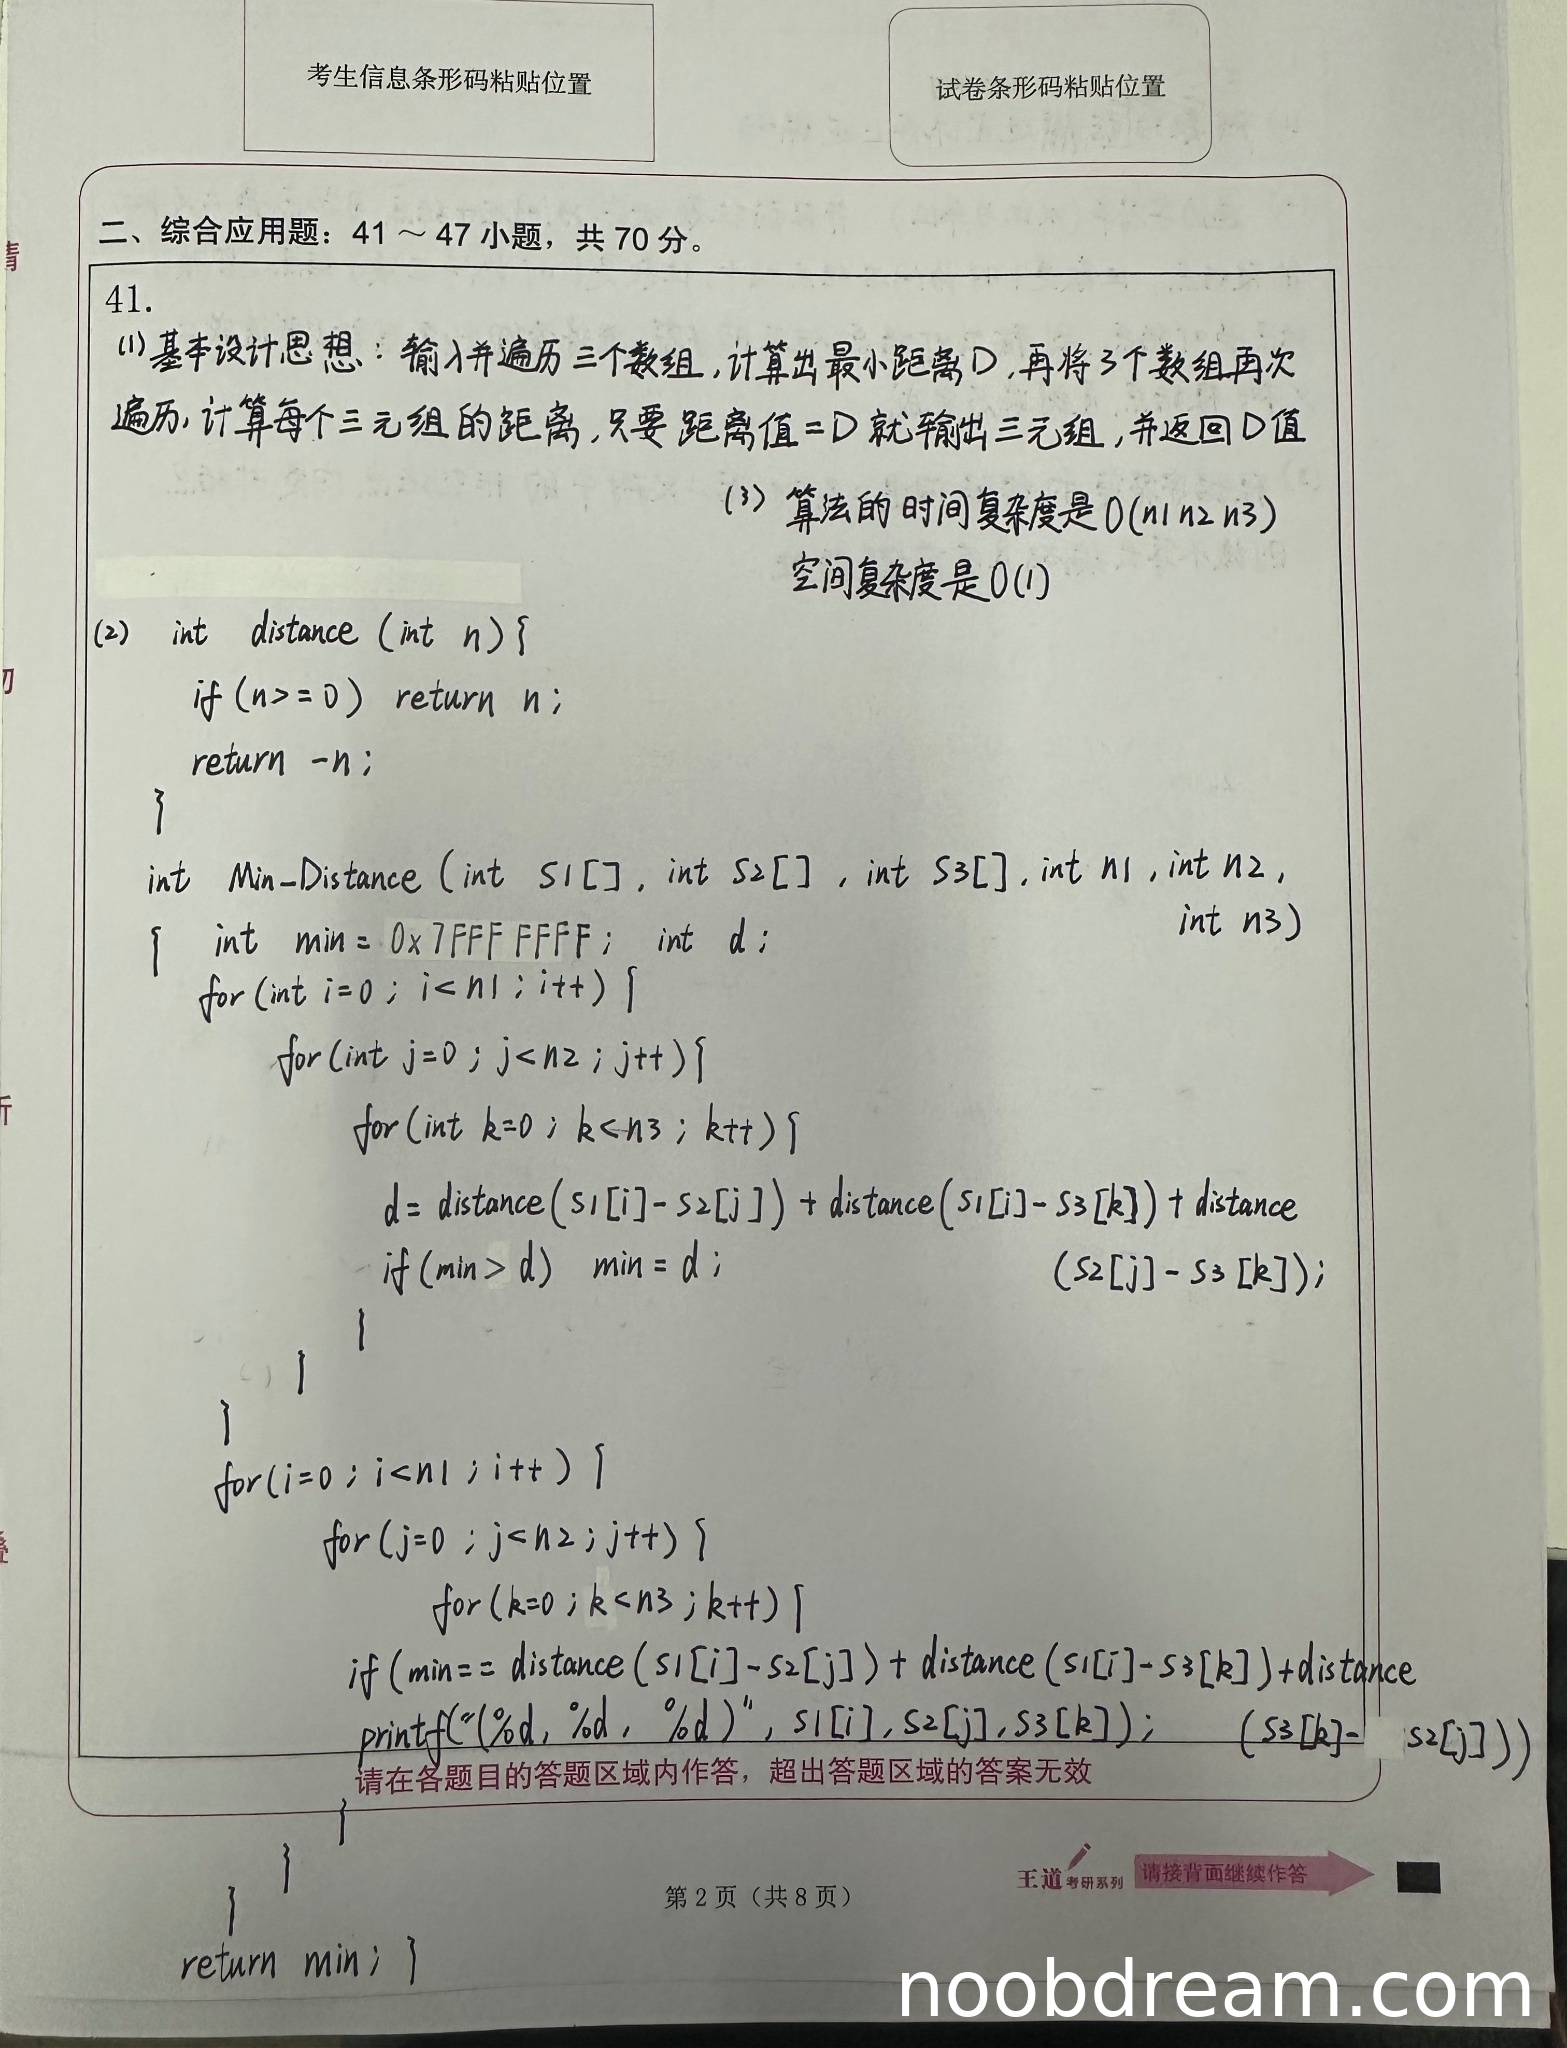 考生信息条形码粘贴位置
试卷条形码粘贴位置
二、综合应用题：41～47 小题，共 70 分。
41.
(1) 基本设计思想：输入并遍历三个数组，计算出最小距离D，再将3个数组再次
遍历，计算每个三元组的距离，只要距离值=D就输出三元组，并返回D值
(3) 算法的时间复杂度是O(n1n2n3)
空间复杂度是O(1)
(2) int distance (int n){
if (n>=0) return n;
return -n;
}
int Min-Distance (int S1[], int S2[], int S3[], int n1, int n2,
int n3)
{ int min = 0x7FFF FFFF; int d;
for (int i=0; i<n1; i++) {
for (int j=0; j<n2; j++) {
for (int k=0; k<n3; k++) {
d= distance(S1[i]-S2[j]) + distance(S1[i]-S3[k]) + distance
(S2[j]-S3[k]);
if (min > d) min = d;
}
}
}
for (i=0; i<n1; i++) {
for (j=0; j<n2; j++) {
for (k=0; k<n3; k++) {
if (min== distance (S1[i]-S2[j]) + distance (S1[i]-S3[k])+distance
(S3[k]-S2[j]))
printf("(%d, %d, %d)", S1[i], S2[j], S3[k]);
请在各题目的答题区域内作答，超出答题区域的答案无效
}
}
}
return min; }
王道考研系列
请接背面继续作答
第 2 页（共 8 页）
noobdream.com